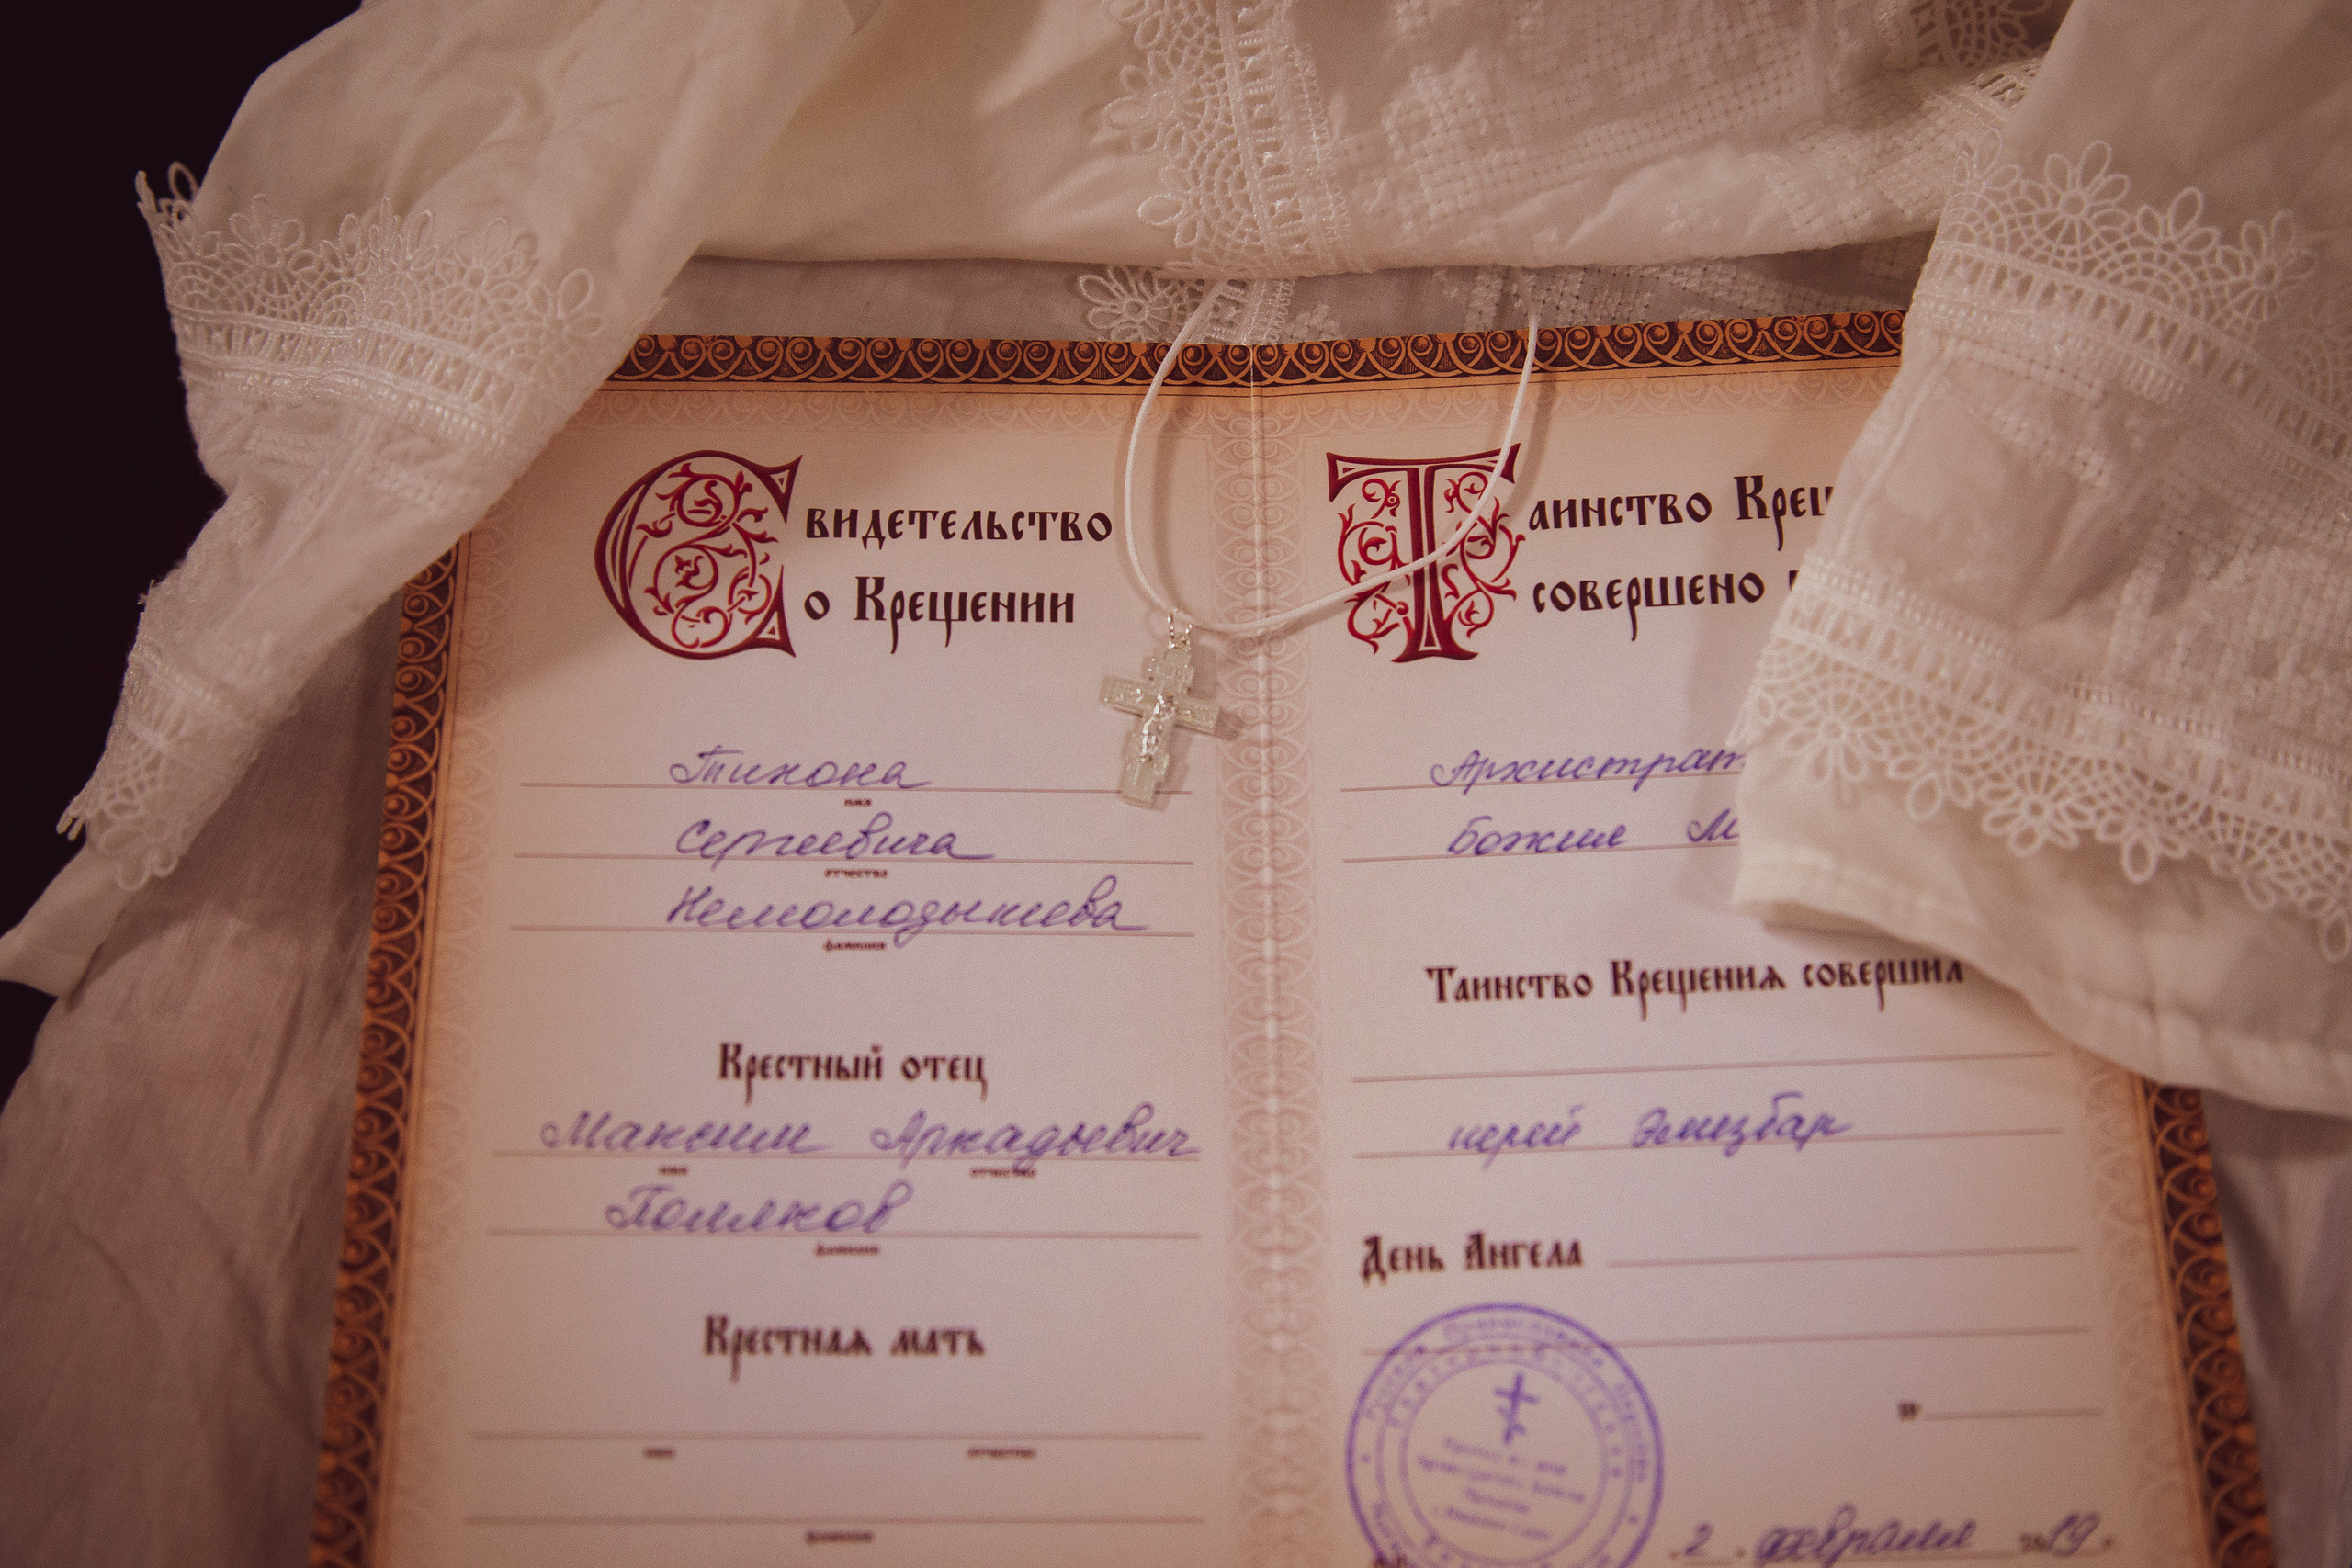 Свидетельство
о Крещении
Тихона
имя
Сергеевича
отчество
Немолодышева
фамилия
Крестный отец
Максим Аркадьевич
имя отчество
Поляков
фамилия
Крестная мать
имя отчество
фамилия
Таинство Крещ
совершено
Архистрат
Божие М
Таинство Крещения совершил
иерей Элизбар
День Ангела
№
Русская Православная Церковь
2 февраля 2019г.